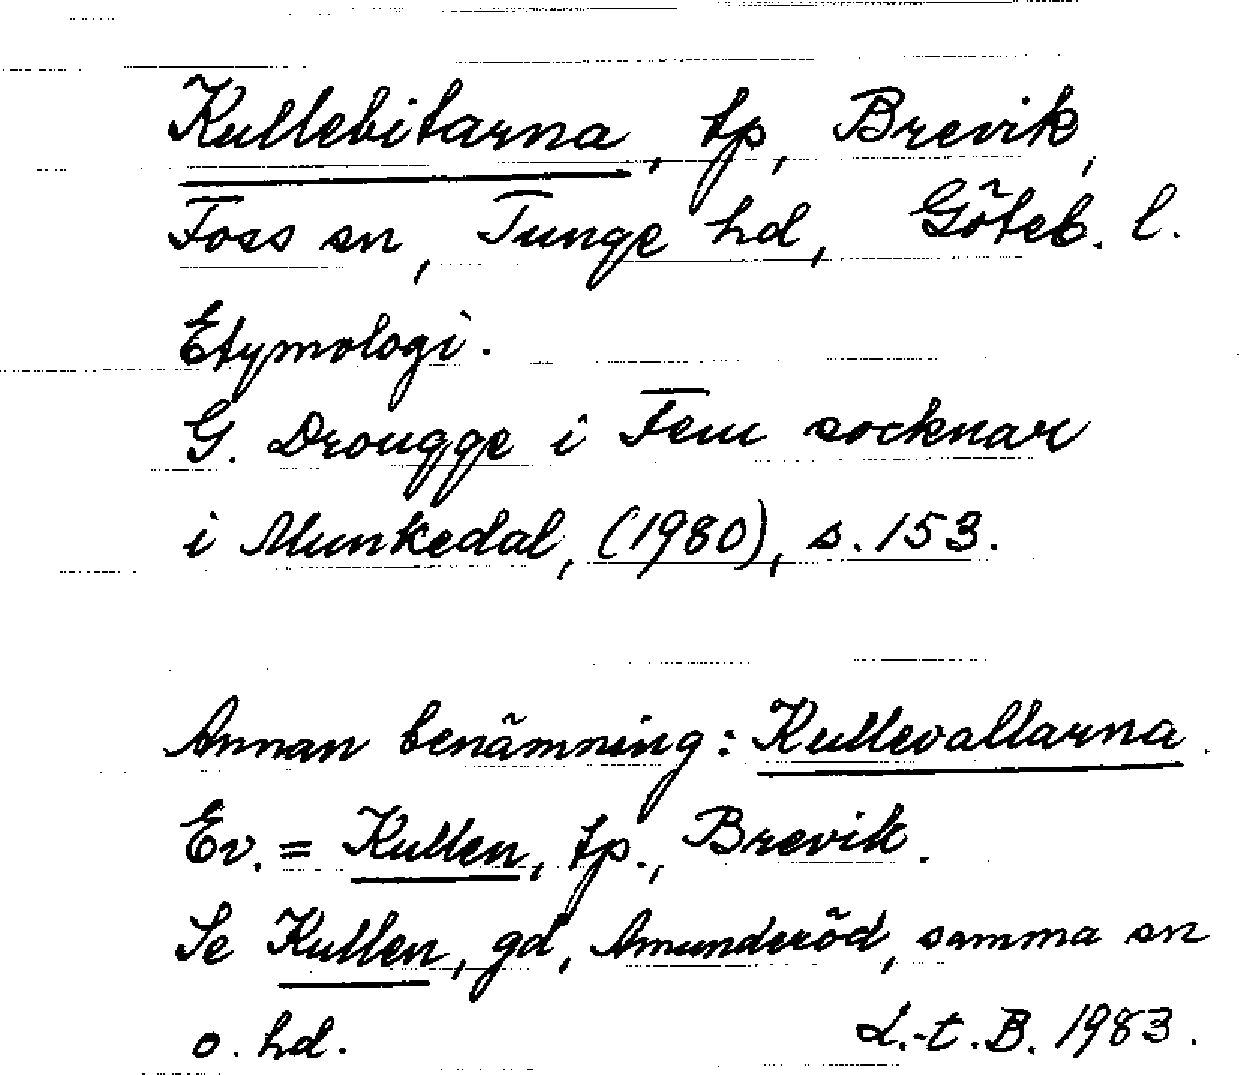 Kullebitarna, tp, Brevik,
Foss sn, Tunge hd, Göteb. l.
Etymologi.
G. Drougge i Fem socknar
i Munkedal, (1980), s. 153.
Annan benämning: Kullevallarna.
Ev. = Kullen, tp., Brevik.
Se Kullen, gd, Amunderöd, samma sn
o. hd.
L.-t. B. 1983.